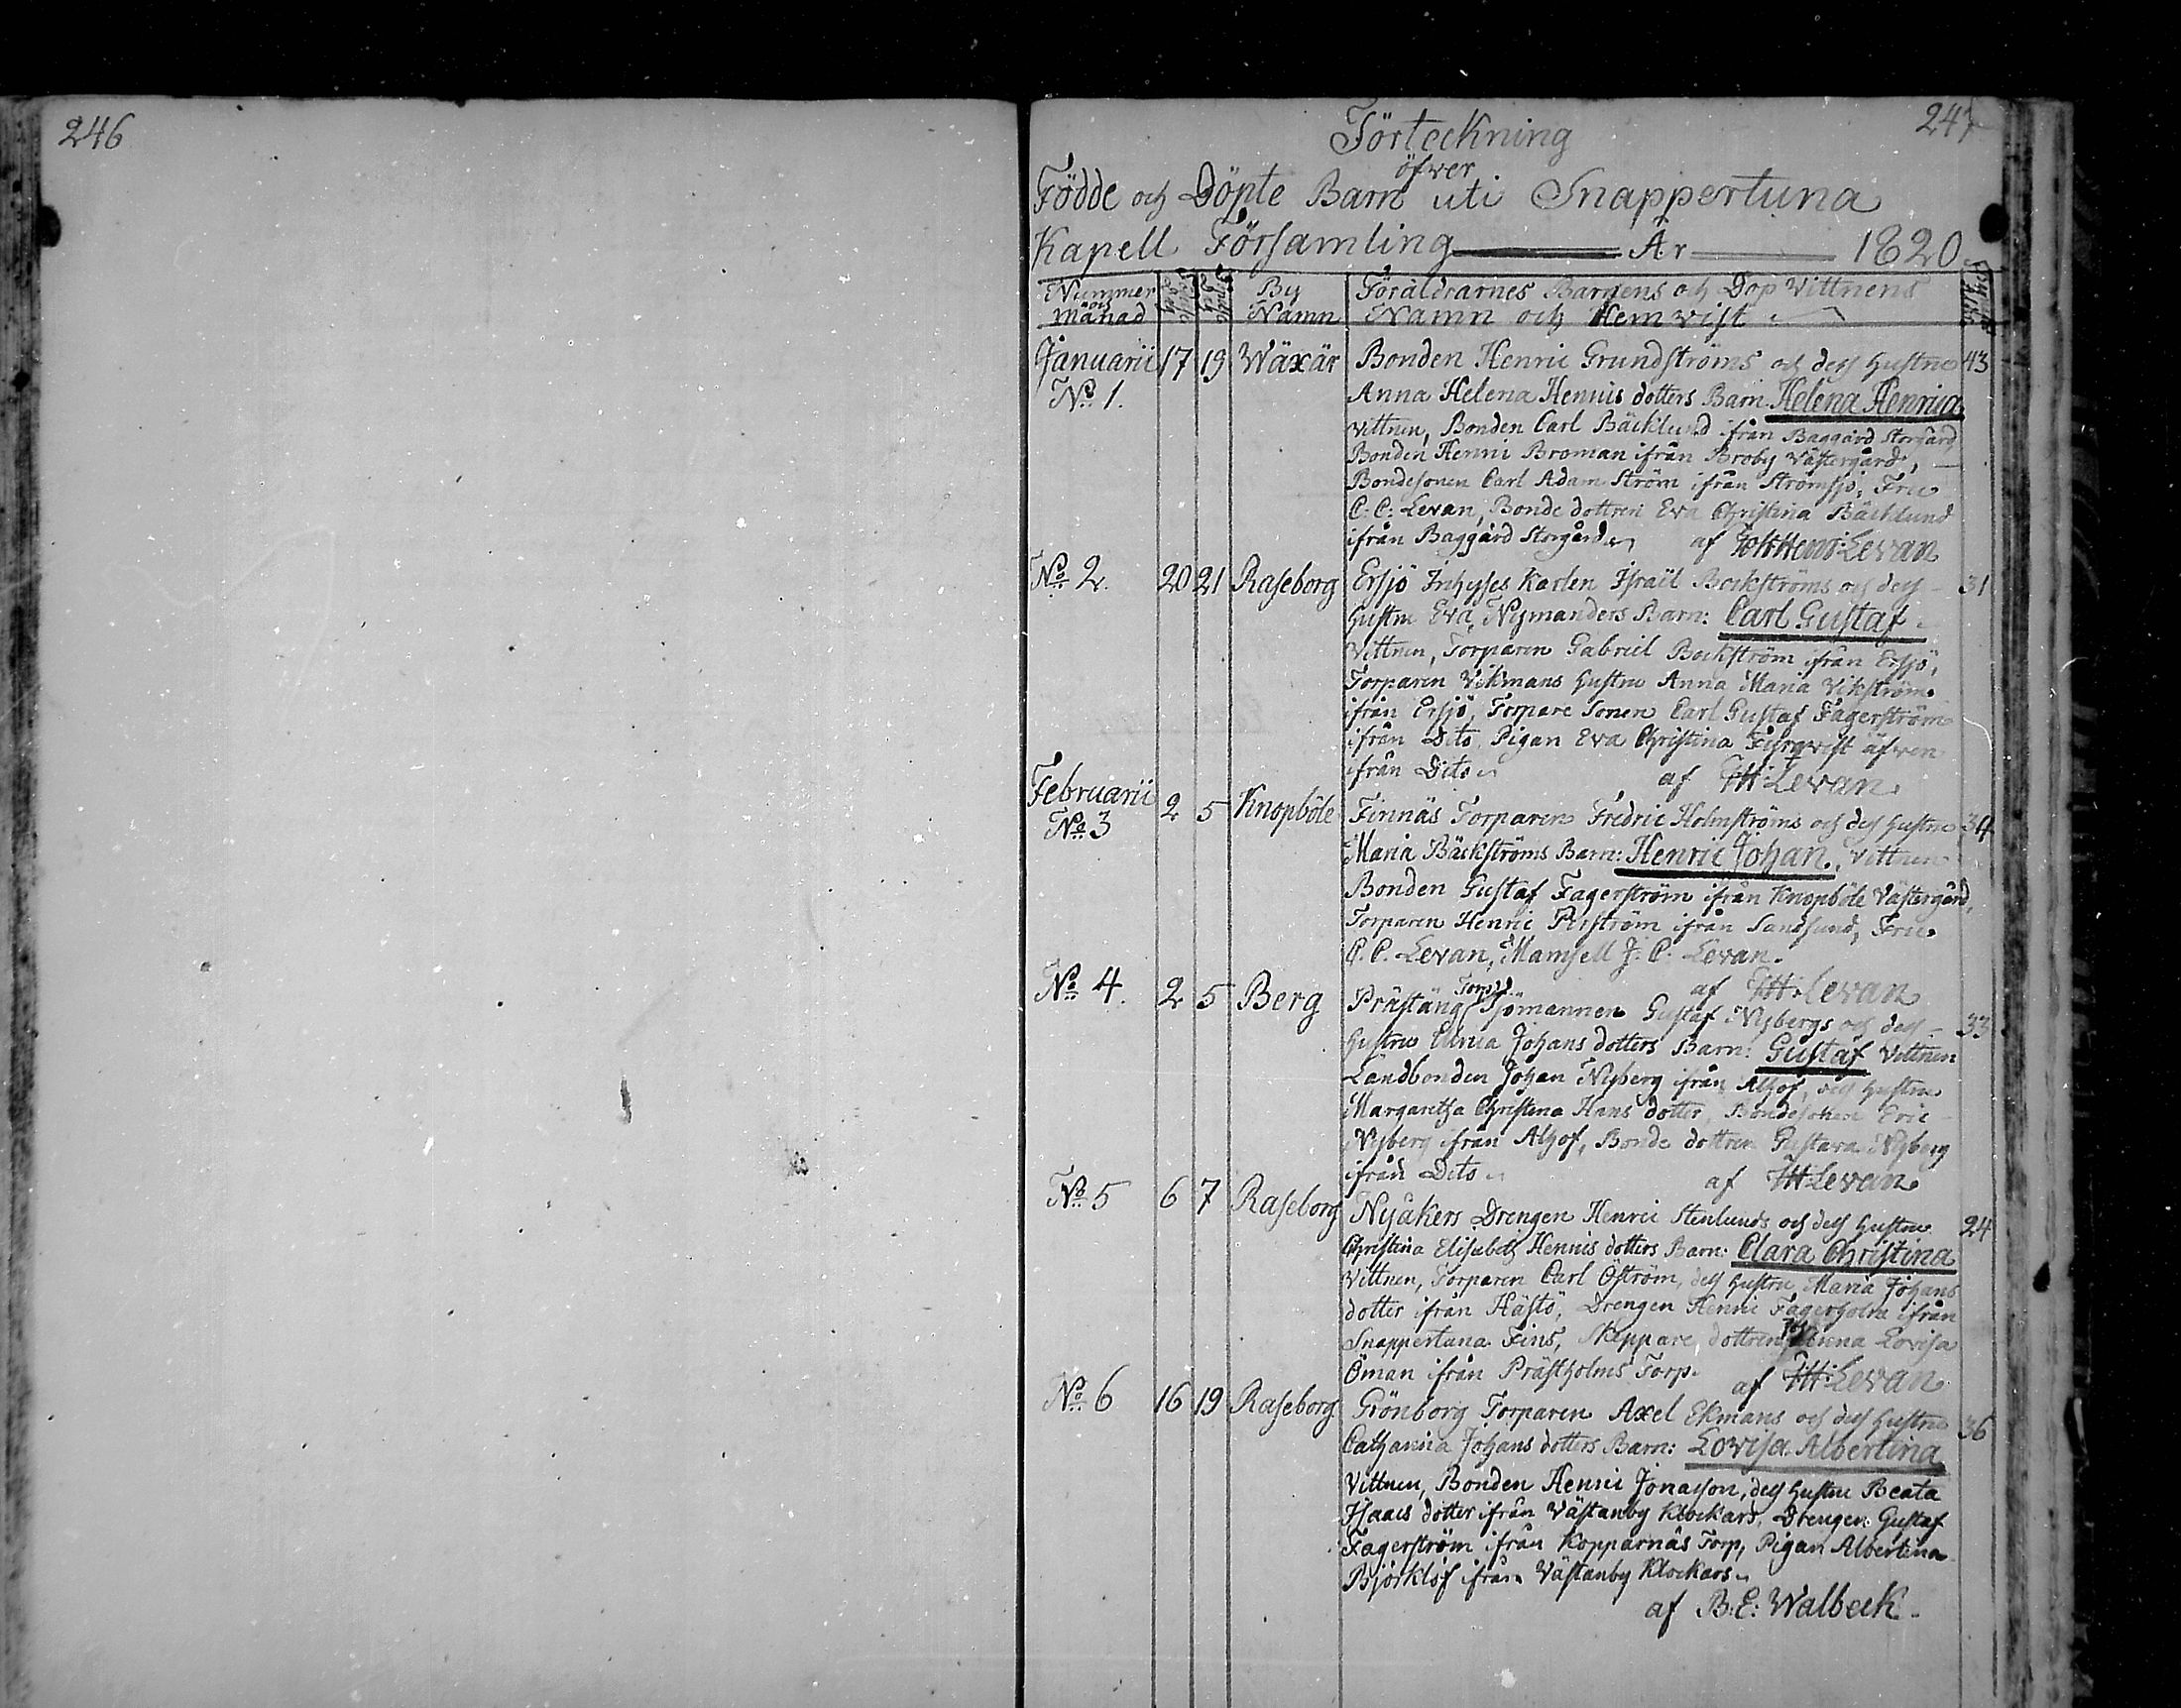 246
247
Förteckning
öfwer
Födde och Döpte Barn uti Snappertuna
Kapell Församling År 1820
Nummer och månad By Namn Föräldrarnes Barnens och Dop Vittnens Namn och Hemvist
Januarii 17 19 Wäxär Bonden Henric Grundströms och dess hustru 43
No 1. Anna Helena Henrics dotters Barn Helena Henrica
Vittnen, Bonden Carl Bäcklund ifrån Baggård Storgård
Bonden Henric Broman ifrån Broby Västergård,
Bondesonen Carl Adam Ström ifrån Strömsjö, Fru
C. C: Levan, Bonde dottren Eva Christina Bäcklund
ifrån Baggård Storgård af Joh Henr: Levan
No 2. 20 21 Raseborg Ersjö Inhyses Karlen Israel Bockströms och dess 31
hustru Eva Nymanders Barn: Carl Gustaf
Vittnen, Torparen Gabriel Bockström ifrån Ersjö,
Torparen Vikmans hustru Anna Maria Vikström
ifrån Ersjö, Torpare Sonen Carl Gustaf Fagerström
ifrån Dito, Pigan Eva Christina äfwen
ifrån Dito af JH: Levan
Februarii
No 3 2 5 Knopböle Finnäs Torparen Fredric Holmströms och dess hustru 34
Maria Bäckströms Barn: Henric Johan. Vittnen
Bonden Gustaf Fagerström ifrån Knopböle Västergård,
Torparen Henric ifrån Sandsund, Fru
C. C. Levan, Mamsell J: C: Levan.
af JH: Levan
No 4. 2 5 Berg Prästängs Torps Sjömannen Gustaf Nybergs och dess 33
hustru Johans dotters Barn: Gustaf Vittnen
Landbonden Johan Nyberg ifrån Alhof, dess hustru
Margaretha Christina Hans dotter, Bondesonen Eric
Nyberg ifrån Alhof, Bonde dottren Gustava Nyberg
ifrån Dito af JH Levan
No 5 6 7 Raseborg Nyåkers Drengen Henric Stenlunds och dess hustru 24
Christina Elisabeth Henrics dotters Barn: Clara Christina
Vittnen, Torparen Carl Öström, dess hustru Maria Johans
dotter ifrån Hästö, Drengen Henric Fagerholm ifrån
Snappertuna Fins, Skeppare dottren Anna Lovisa
Öman ifrån Prästholms Torp. af JH: Levan
No 6 16 19 Raseborg Grönborg Torparen Axel Ekmans och dess hustru 36
Catharina Johans dotters Barn: Lovisa Albertina
Vittnen, Bonden Henric Jonasson, dess hustru Beata
Isaacs dotter ifrån Västanby Klockars, Drengen Gustaf
Fagerström ifrån Kopparnäs Torp, Pigan Albertina
Björklöf ifrån Västanby Klockars
af B: E: Walbeck.